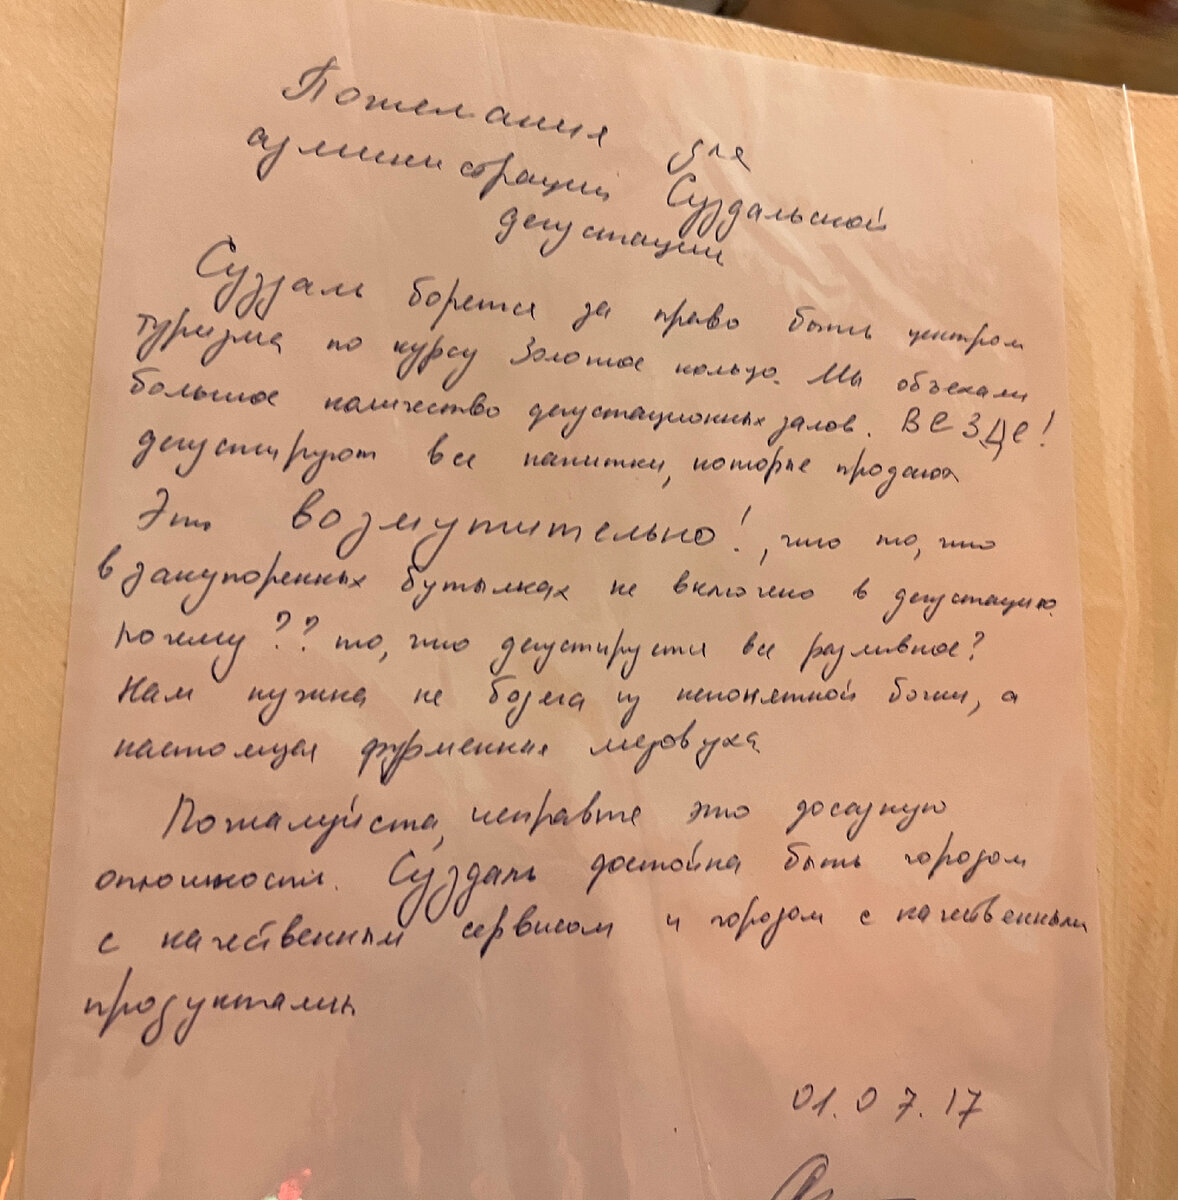 Пожелания для
администрации Суздальской
дегустации
Суздаль борется за право быть центром
туризма по курсу Золотое кольцо. Мы объехали
большое количество дегустационных залов. ВеЗДе!
дегустируют все напитки, которые продают
Это возмутительно!, что то, что
в закупоренных бутылках не включено в дегустацию.
почему?? то, что дегустируется все разливное?
Нам нужна не бодяга из непонятной бочки, а
настоящая фирменная медовуха
Пожалуйста, исправьте это досадную
оплошность. Суздаль достойна быть городом
с качественным сервисом и городом с качественными
продуктами
01.07.17